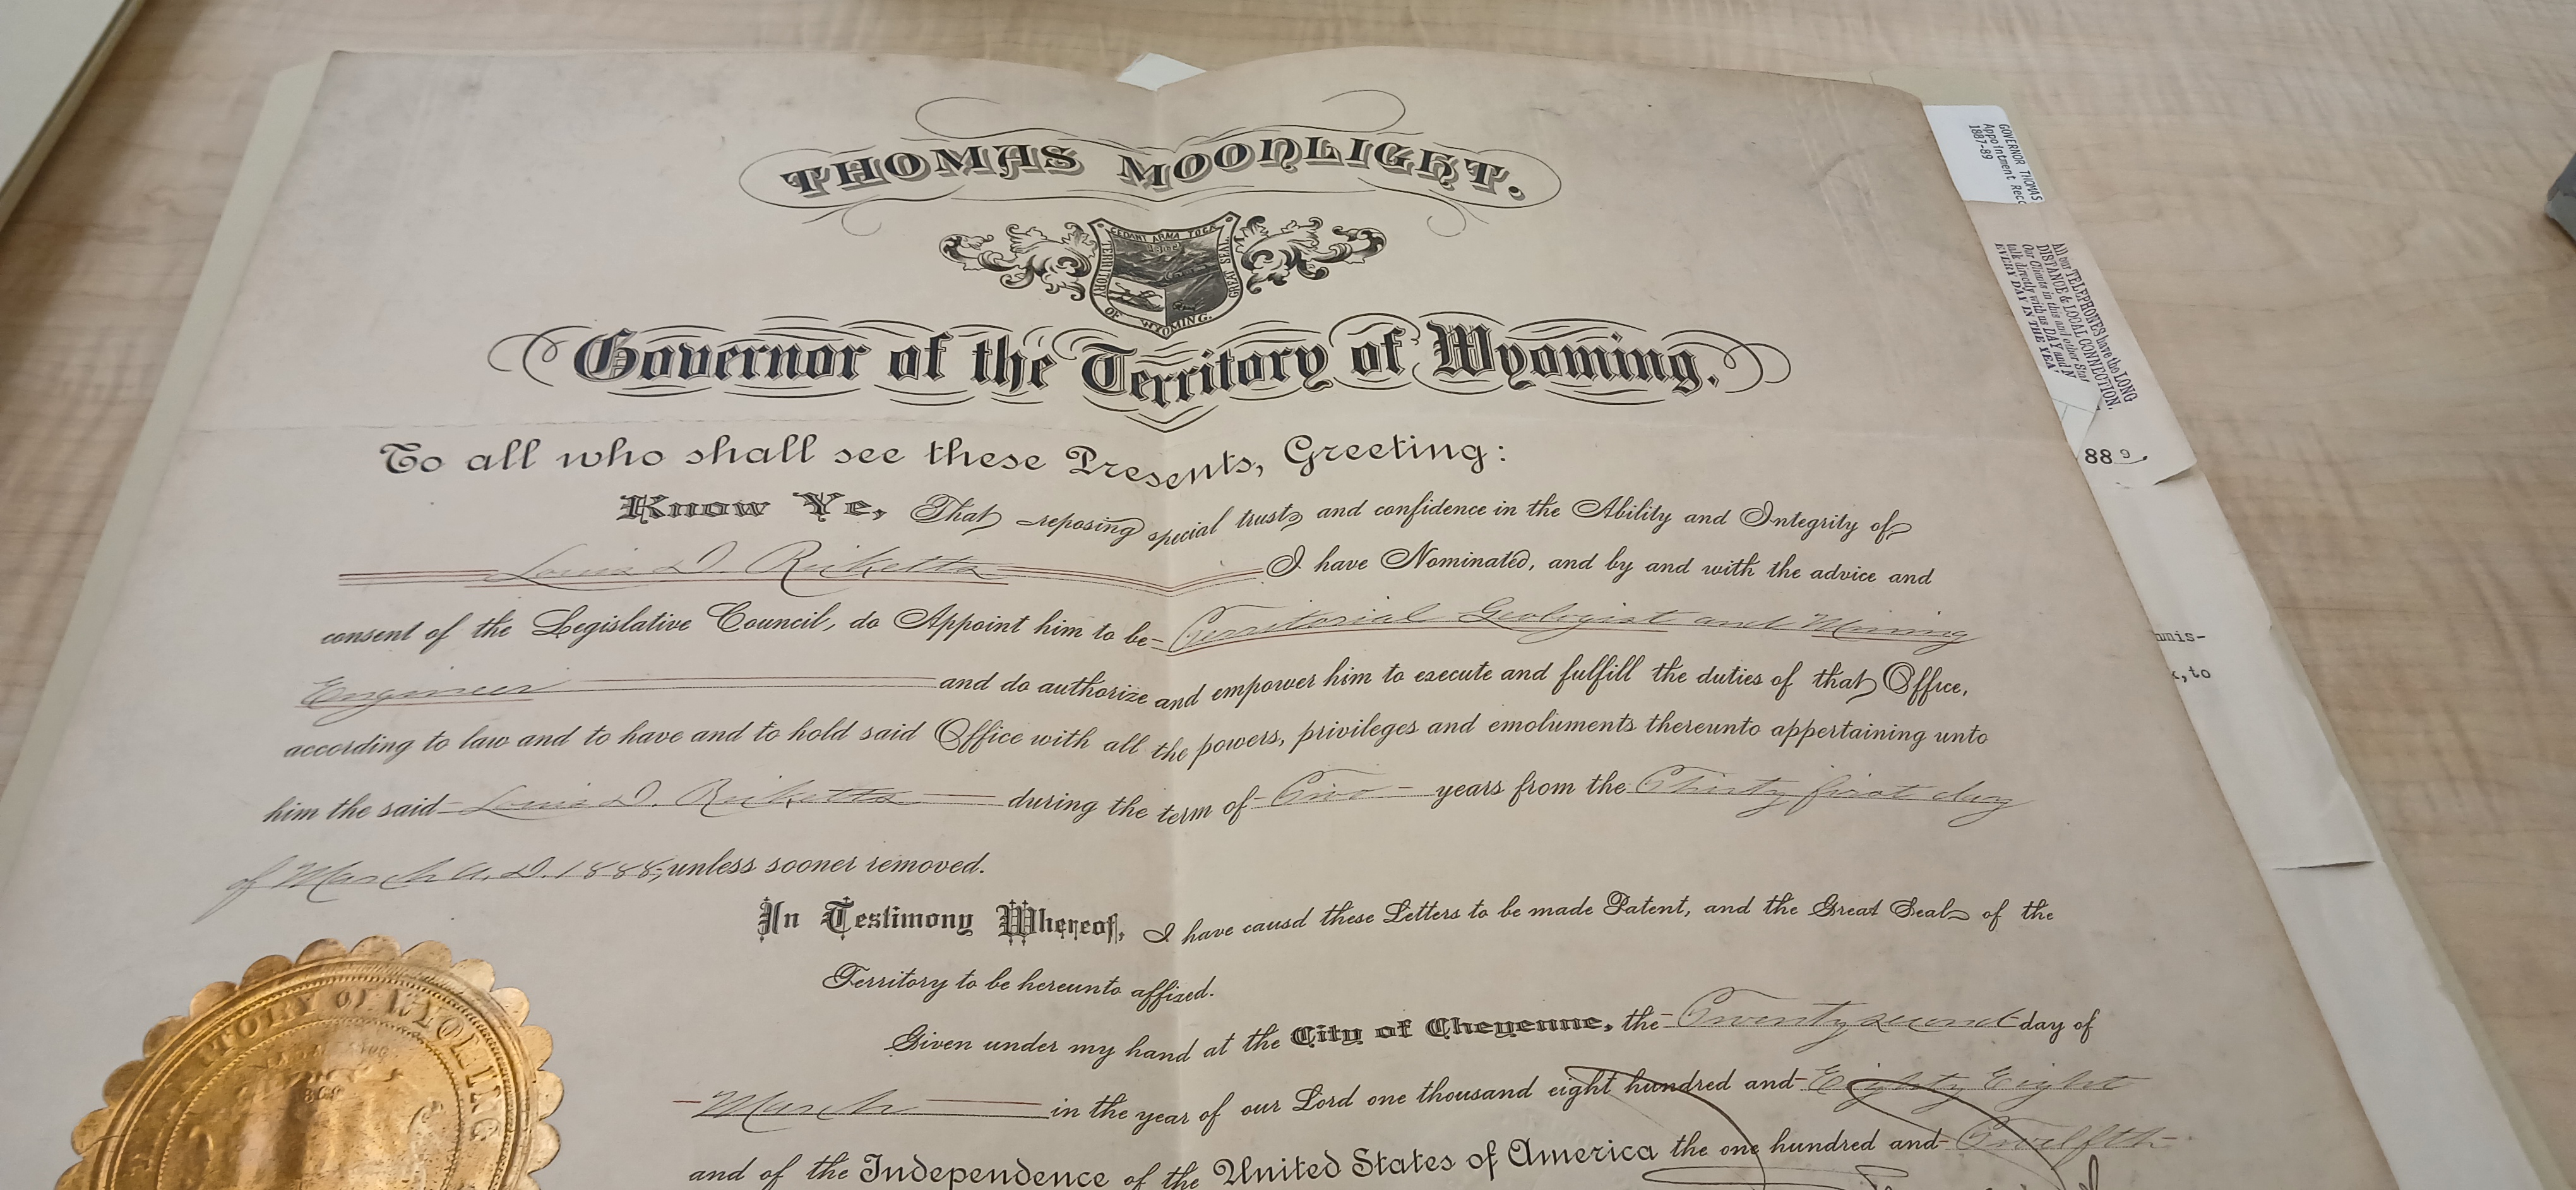 THOMAS MOONLIGHT.
CEDANT ARMA TOGÆ
TERRITORY OF WYOMING. GREAT SEAL
Governor of the Territory of Wyoming.
To all who shall see these Presents, Greeting:
Know Ye, That reposing special trust and confidence in the Ability and Integrity of
Louis D. Ricketts I have Nominated, and by and with the advice and
consent of the Legislative Council, do Appoint him to be Territorial Geologist and Mining
Engineer and do authorize and empower him to execute and fulfill the duties of that Office,
according to law and to have and to hold said Office with all the powers, privileges and emoluments thereunto appertaining unto
him the said Louis D. Ricketts during the term of Two years from the Thirty first day
of March A.D. 1888, unless sooner removed.
In Testimony Whereof, I have causd these Letters to be made Patent, and the Great Seal of the
Territory to be hereunto affixed.
Given under my hand at the City of Cheyenne, the Twenty second day of
March in the year of our Lord one thousand eight hundred and Eighty Eight
and of the Independence of the United States of America the one hundred and Twelfth
TORY OF WYOMING
GOVERNOR THOMAS
Appointment Rec
1887-89
All our TELEPHONES have the LONG
DISTANCE & LOCAL CONNECTION.
Our Clients in this and other Stat
talk directly with us DAY and N
EVERY DAY IN THE YEAR
889
nnis-
, to